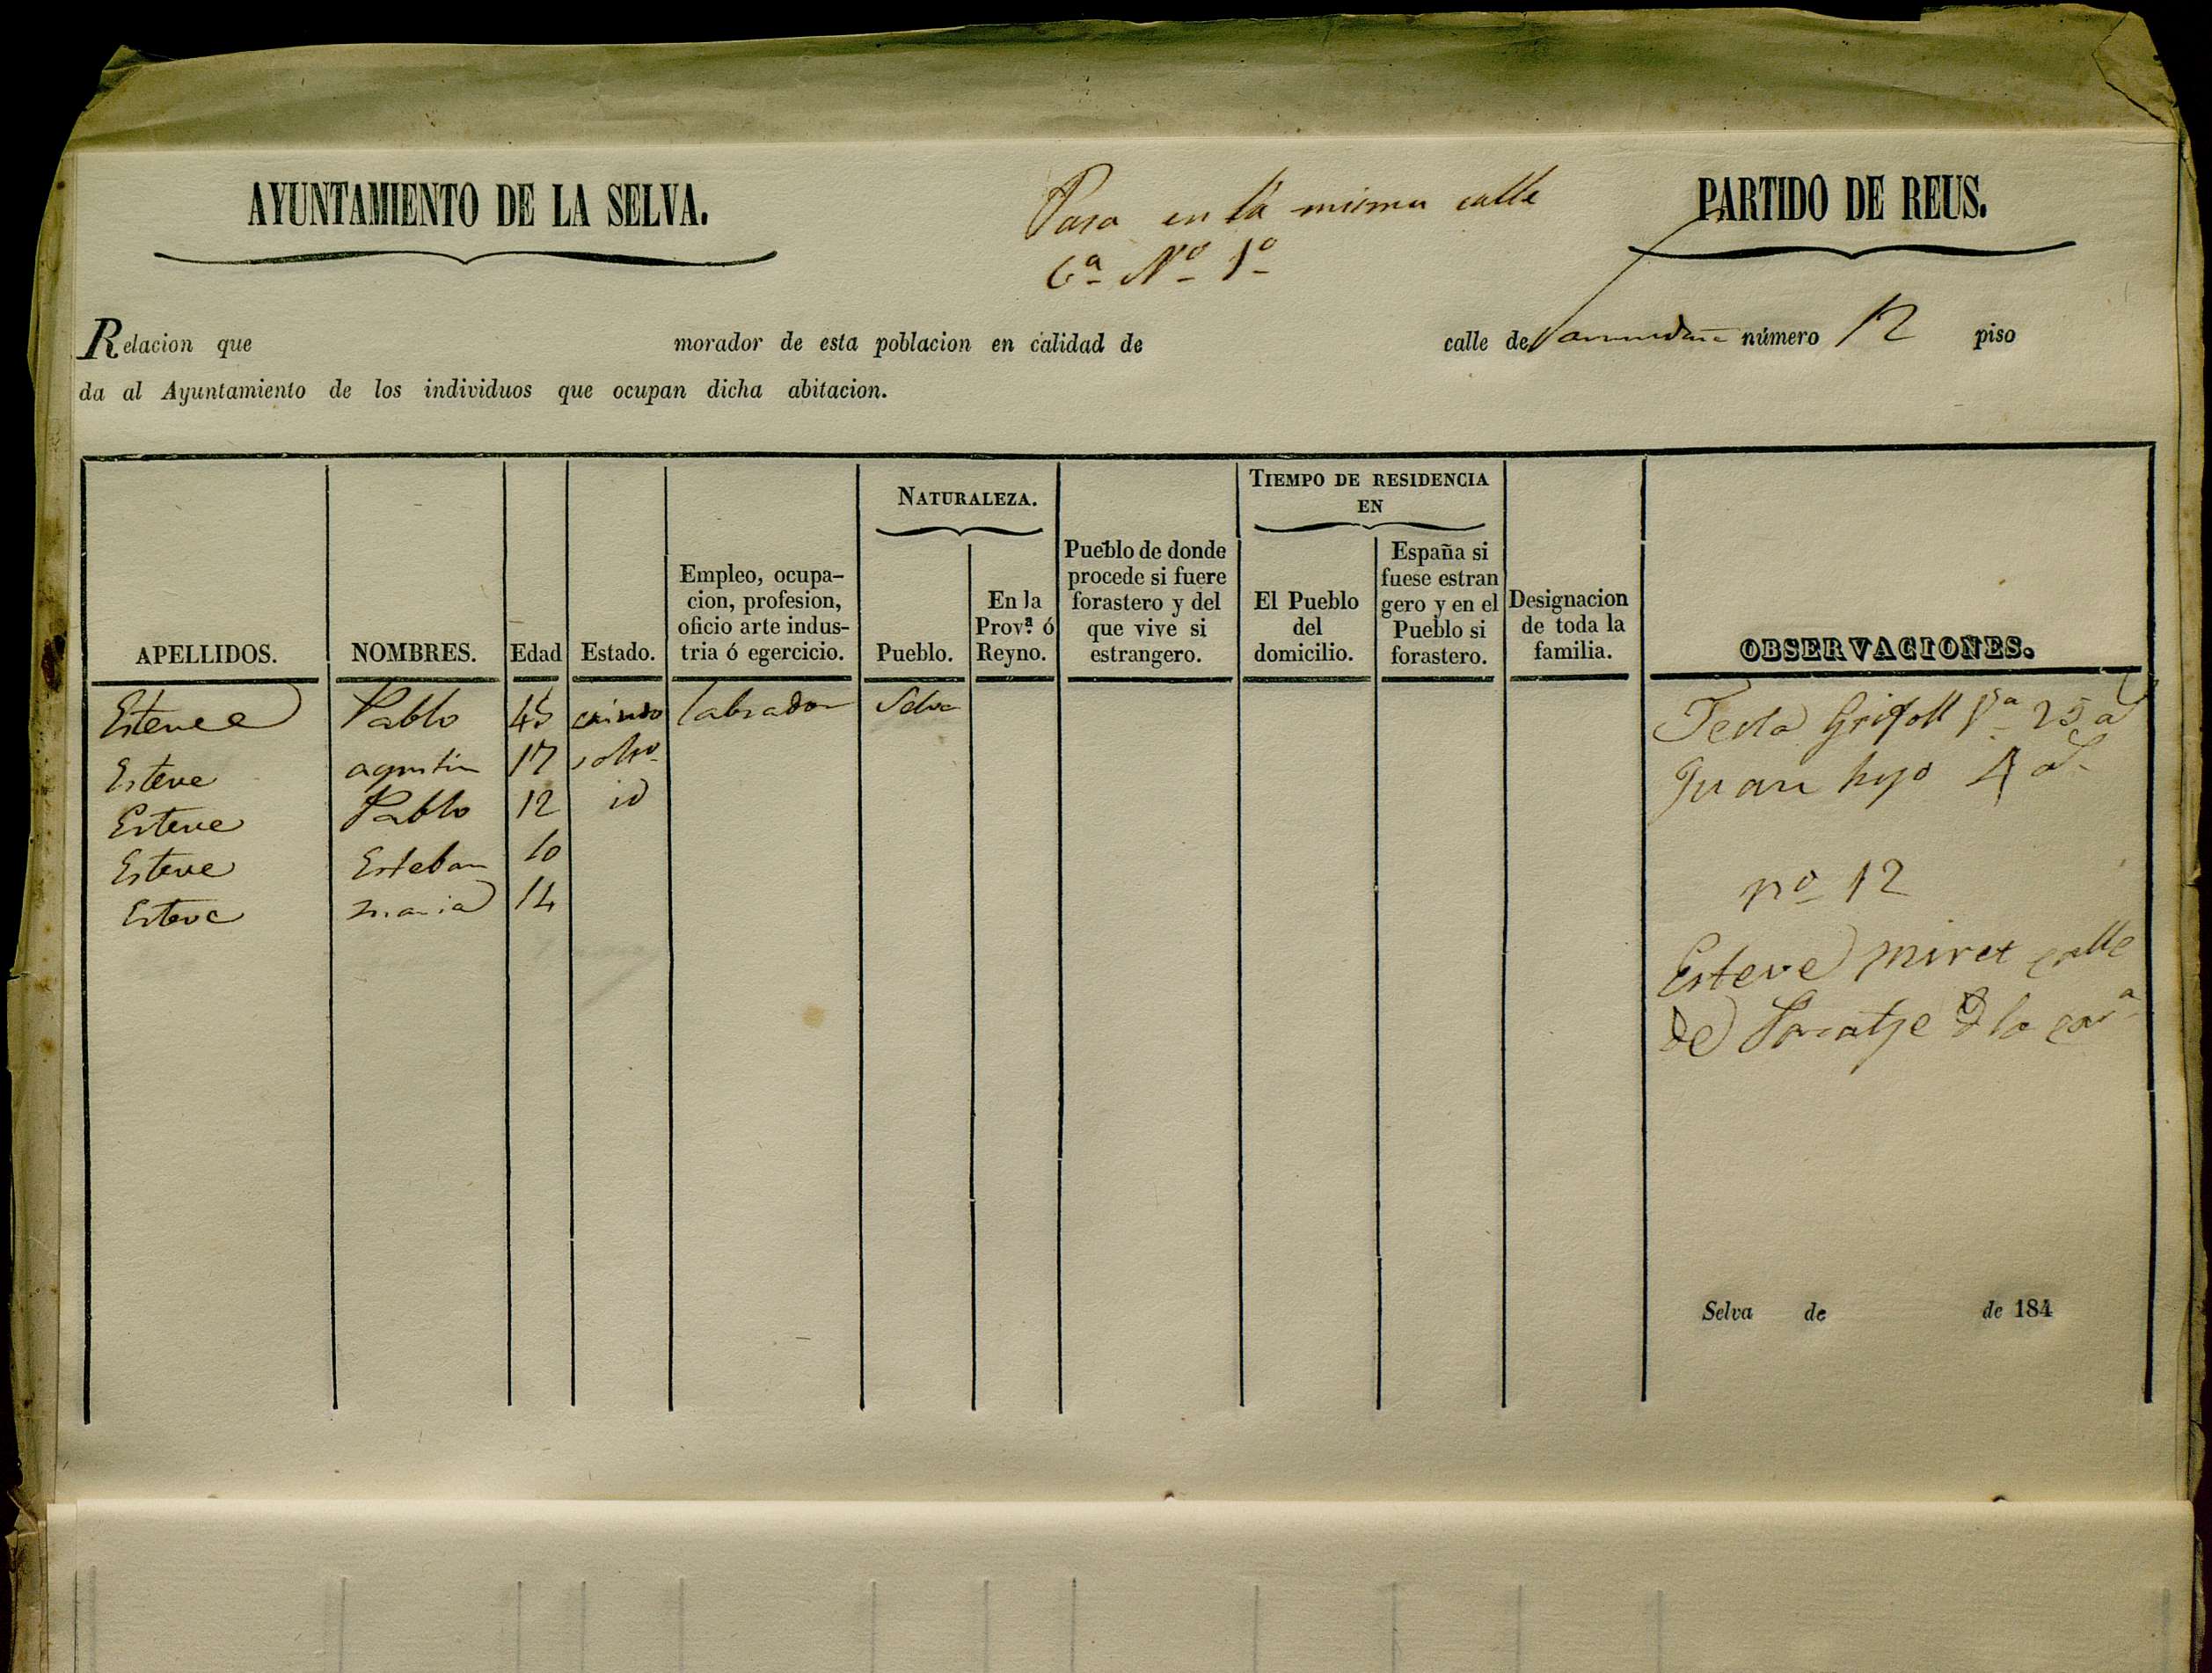 AYUNTAMIENTO DE LA SELVA.
Pasa en la misma calle
Cª Nº 1º
PARTIDO DE REUS.
Relacion que morador de esta poblacion en calidad de calle de número 12 piso
da al Ayuntamiento de los individuos que ocupan dicha abitacion.
APELLIDOS.
NOMBRES.
Edad
Estado.
Empleo, ocupa-
cion, profesion,
oficio arte indus-
tria ó egercicio.
NATURALEZA.
Pueblo.
En la
Provª ó
Reyno.
Pueblo de donde
procede si fuere
forastero y del
que vive si
estrangero.
TIEMPO DE RESIDENCIA
EN
El Pueblo
del
domicilio.
España si
fuese estran
gero y en el
Pueblo si
forastero.
Designacion
de toda la
familia.
OBSERVACIONES.
Esteve Pablo 45 labrador Selva
Esteve agustin 17 solto
Esteve Pablo 12 id
Esteve Esteban 10
Esteve maria 14
Tecla Grifoll 25 a
Juan hijo 4 a
nº 12
Esteve Miret calle
de la
Selva de de 184